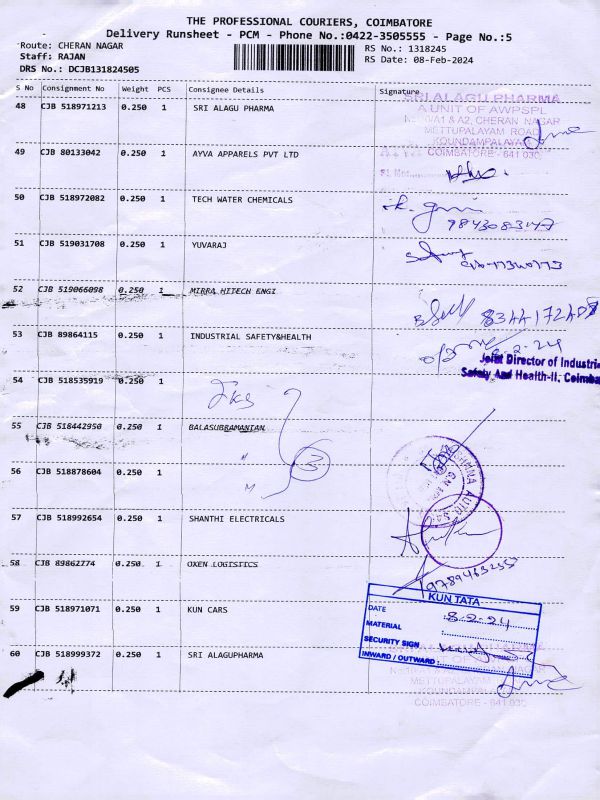 THE PROFESSIONAL COURIERS, COIMBATORE
Delivery Runsheet - PCM - Phone No.:0422-3505555 - Page No.:5
Route: CHERAN NAGAR
RS No.: 1318245
Staff: RAJAN
RS Date: 08-Feb-2024
DRS No.: DCJB131824505
S No Consignment No Weight PCS Consignee Details Signature
48 CJB 518971213 0.250 1 SRI ALAGU PHARMA
SRI ALAGU PHARMA
A UNIT OF AWPSPL
A1 & A2, CHERAN NAGAR
METTUPALAYAM ROAD
KOUNDAMPALAYAM
COIMBATORE - 641 030
49 CJB 80133042 0.250 1 AYVA APPARELS PVT LTD
50 CJB 518972082 0.250 1 TECH WATER CHEMICALS
9843083147
51 CJB 519031708 0.250 1 YUVARAJ
52 CJB 519066098 0.250 1 MIRRA HITECH ENGI
53 CJB 89864115 0.250 1 INDUSTRIAL SAFETY&HEALTH
8-2-24
Joint Director of Industrial
Safety And Health-II, Coimba
54 CJB 518535919 0.250 1
55 CJB 518442950 0.250 1 BALASUBRAMANIAN
3
56 CJB 518878604 0.250 1
57 CJB 518992654 0.250 1 SHANTHI ELECTRICALS
58 CJB 89862774 0.250 1 OXEN LOGISTICS
59 CJB 518971071 0.250 1 KUN CARS
KUN TATA
DATE : 8-2-24
MATERIAL :
SECURITY SIGN :
INWARD / OUTWARD :
60 CJB 518999372 0.250 1 SRI ALAGUPHARMA
METTUPALAYAM ROAD
KOUNDAMPALAYAM
COIMBATORE - 641 030